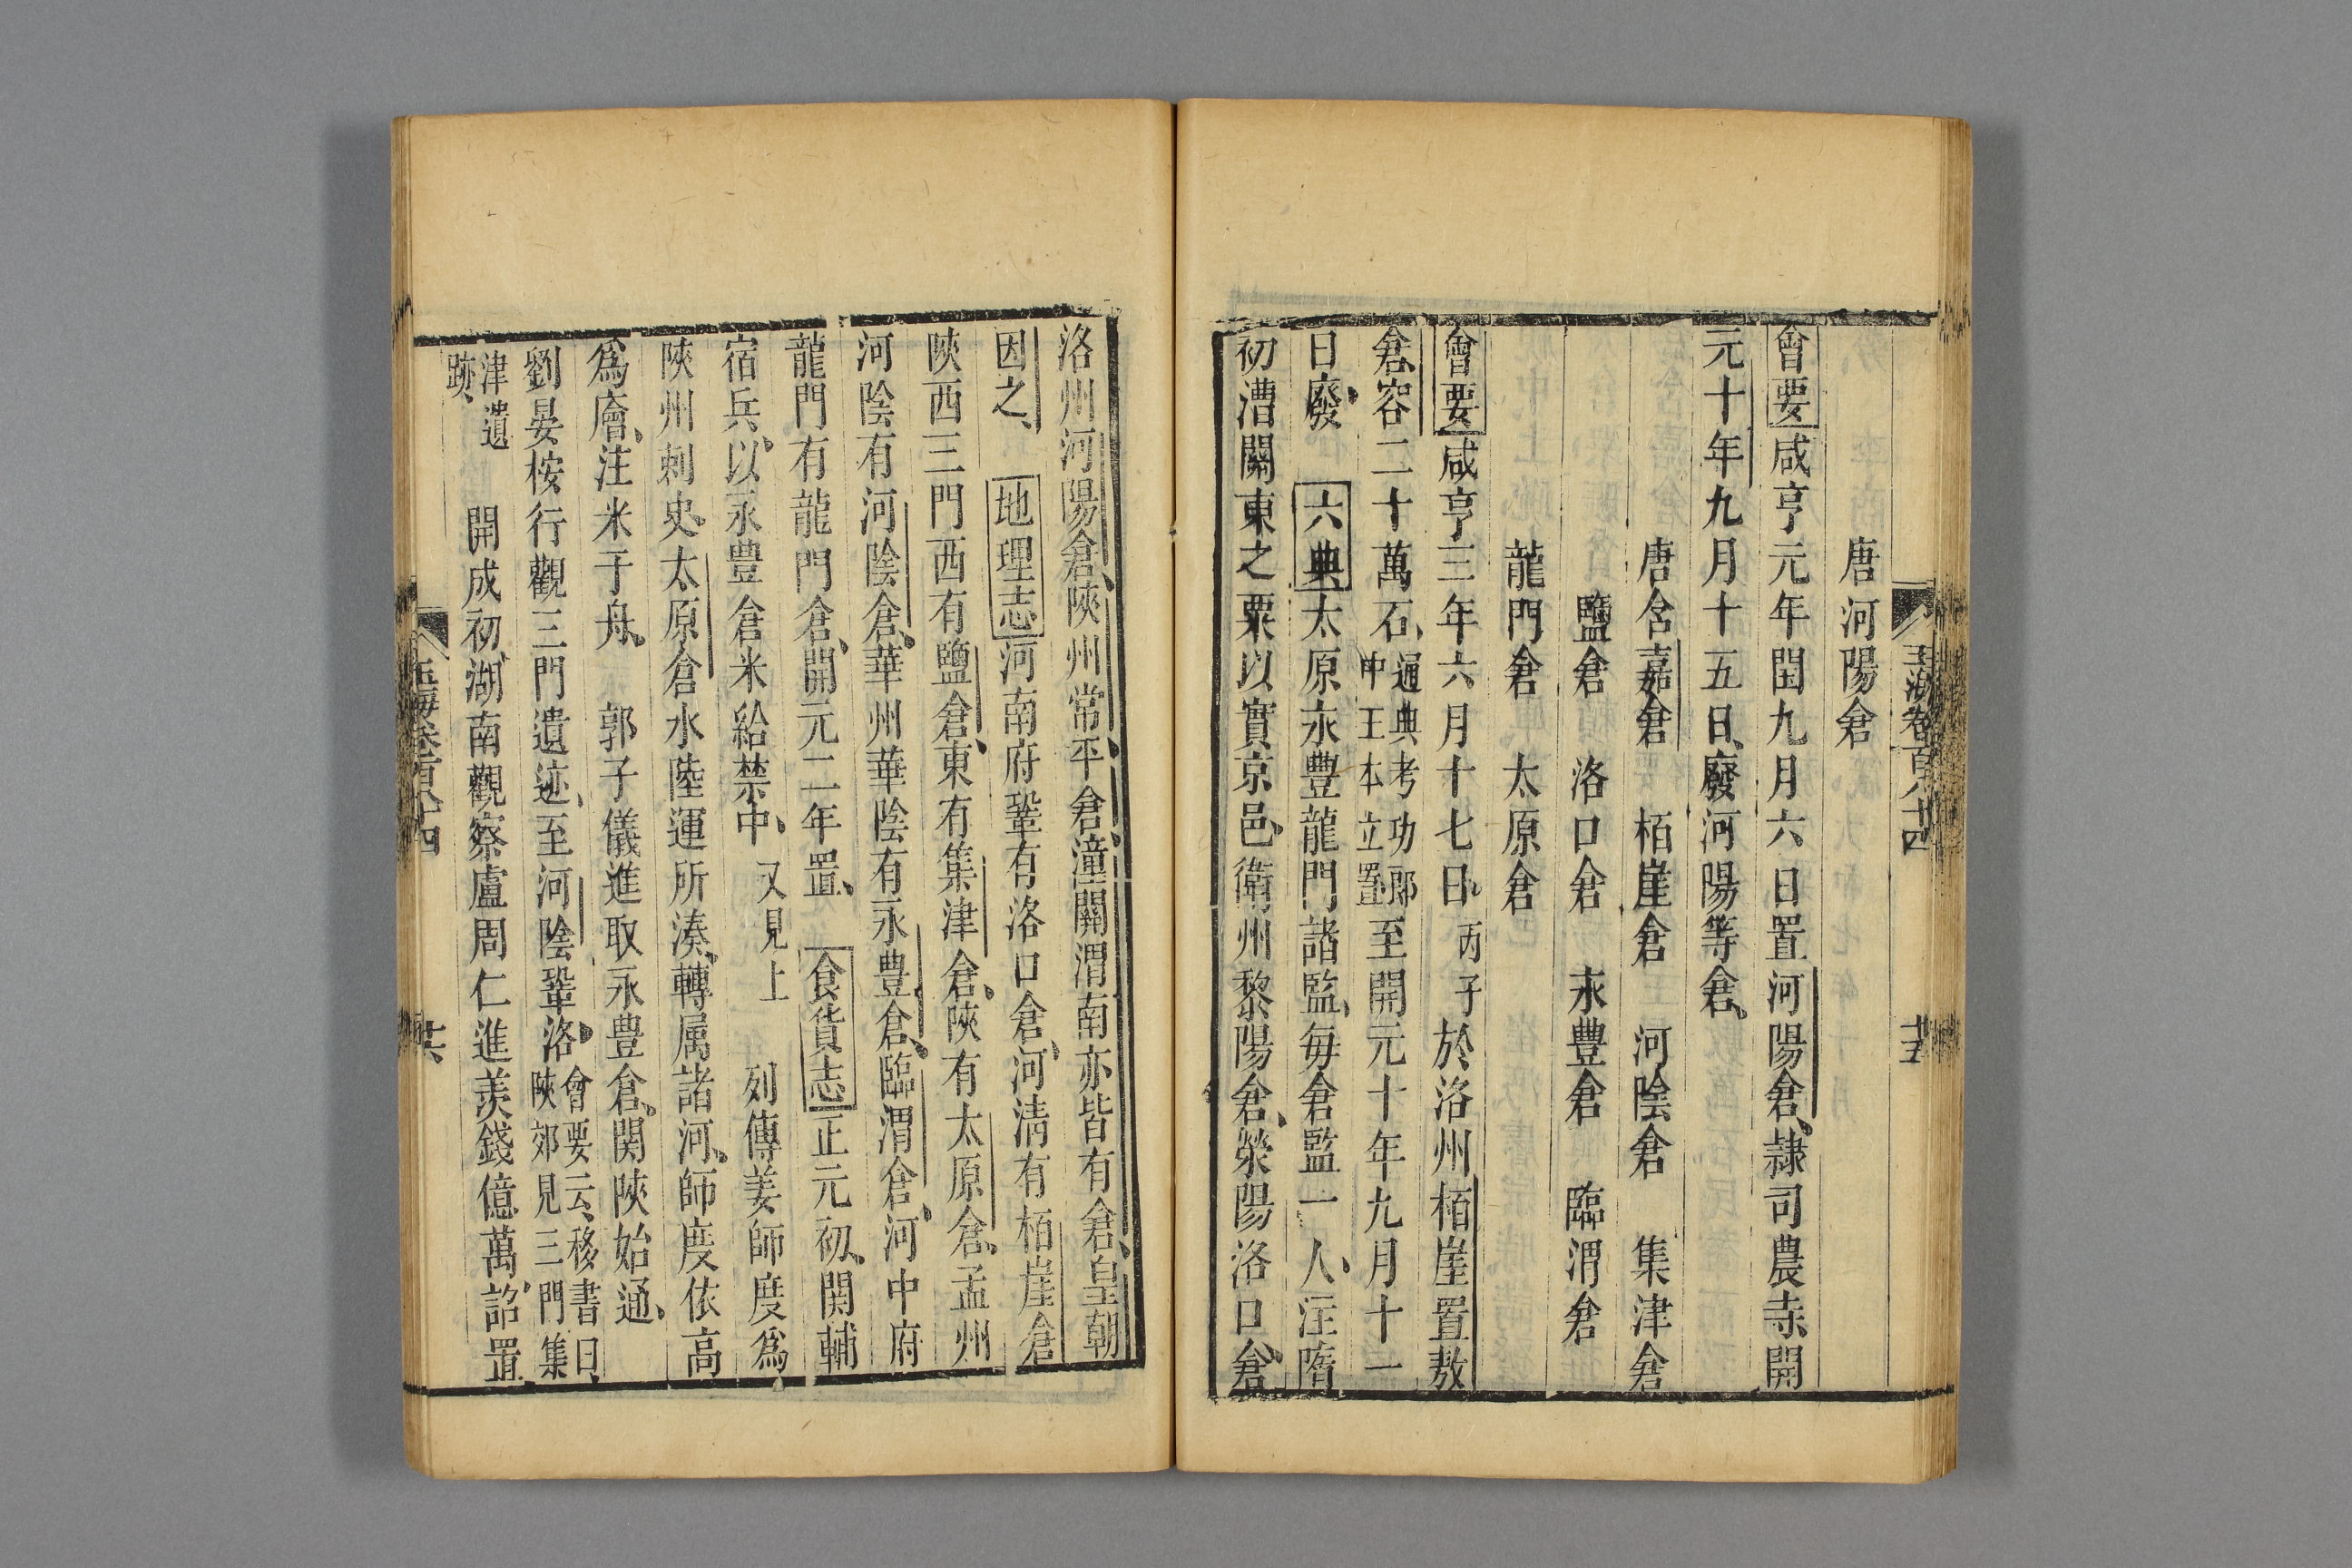 玉海卷百八十四 十五
唐河陽倉
會要咸亨元年閏九月六日置河陽倉隷司農寺開
元十年九月十五日廢河陽等倉
唐含嘉倉 栢崖倉 河陰倉 集津倉
鹽倉 洛口倉 永豐倉 臨渭倉
龍門倉 太原倉
會要咸亨三年六月十七日丙子於洛州栢崖置敖
倉容二十萬石通典考功郎中王本立置至開元十年九月十一
日廢 六典太原永豐龍門諸監每倉監一人注隋
初漕關東之粟以實京邑衛州黎陽倉滎陽洛口倉
洛州河陽倉陝州常平倉潼關渭南亦皆有倉皇朝
因之 地理志河南府鞏有洛口倉河淸有栢崖倉
陝西三門西有鹽倉東有集津倉陝有太原倉孟州
河陰有河陰倉華州華陰有永豊倉臨渭倉河中府
龍門有龍門倉開元二年置 食貨志正元初関輔
宿兵以永豊倉米給禁中又見上 列傳姜師度爲
陝州刺史太原倉水陸運所湊轉属諸河師度依高
爲廥注米于舟 郭子儀進取永豊倉関陝始通
劉晏桉行觀三門遺迹至河陰鞏洛會要云移書曰陝郊見三門集
津遺跡 開成初湖南觀察盧周仁進羨錢億萬詔置
玉海卷百八十四 十六